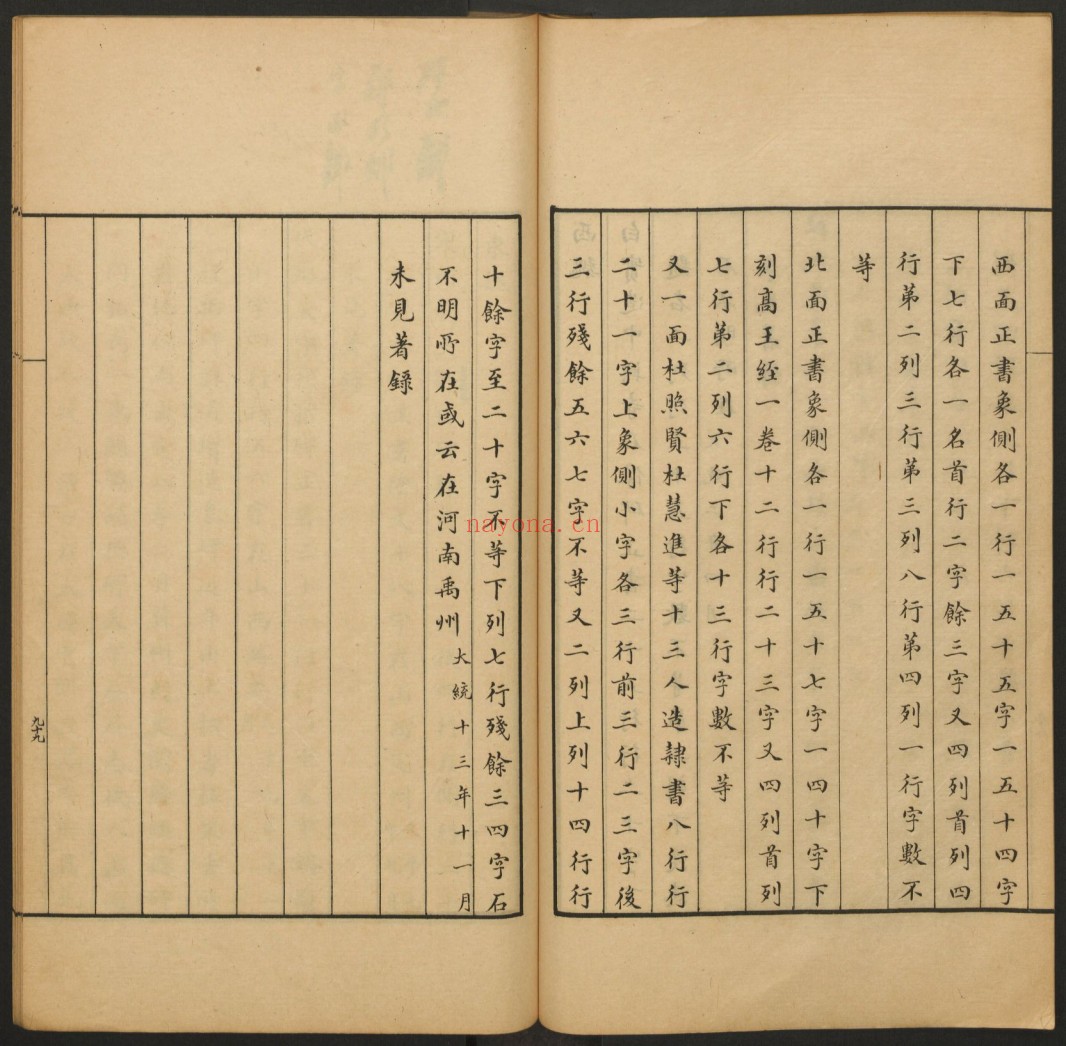 西面正書象側各一行一五十五字一五十四字
下七行各一名首行二字餘三字又四列首列四
行第二列三行第三列八行第四列一行字數不
等
北面正書象側各一行一五十七字一四十字下
刻髙王経一卷十二行行二十三字又四列首列
七行第二列六行下各十三行字數不等
又一面杜照賢杜慧進等十三人造隷書八行行
二十一字上象側小字各三行前三行二三字後
三行殘餘五六七字不等又二列上列十四行行
十餘字至二十字不等下列七行殘餘三四字石
不明所在或云在河南禹州 大統十三年十一月
未見著錄
九十九
nayona.cn